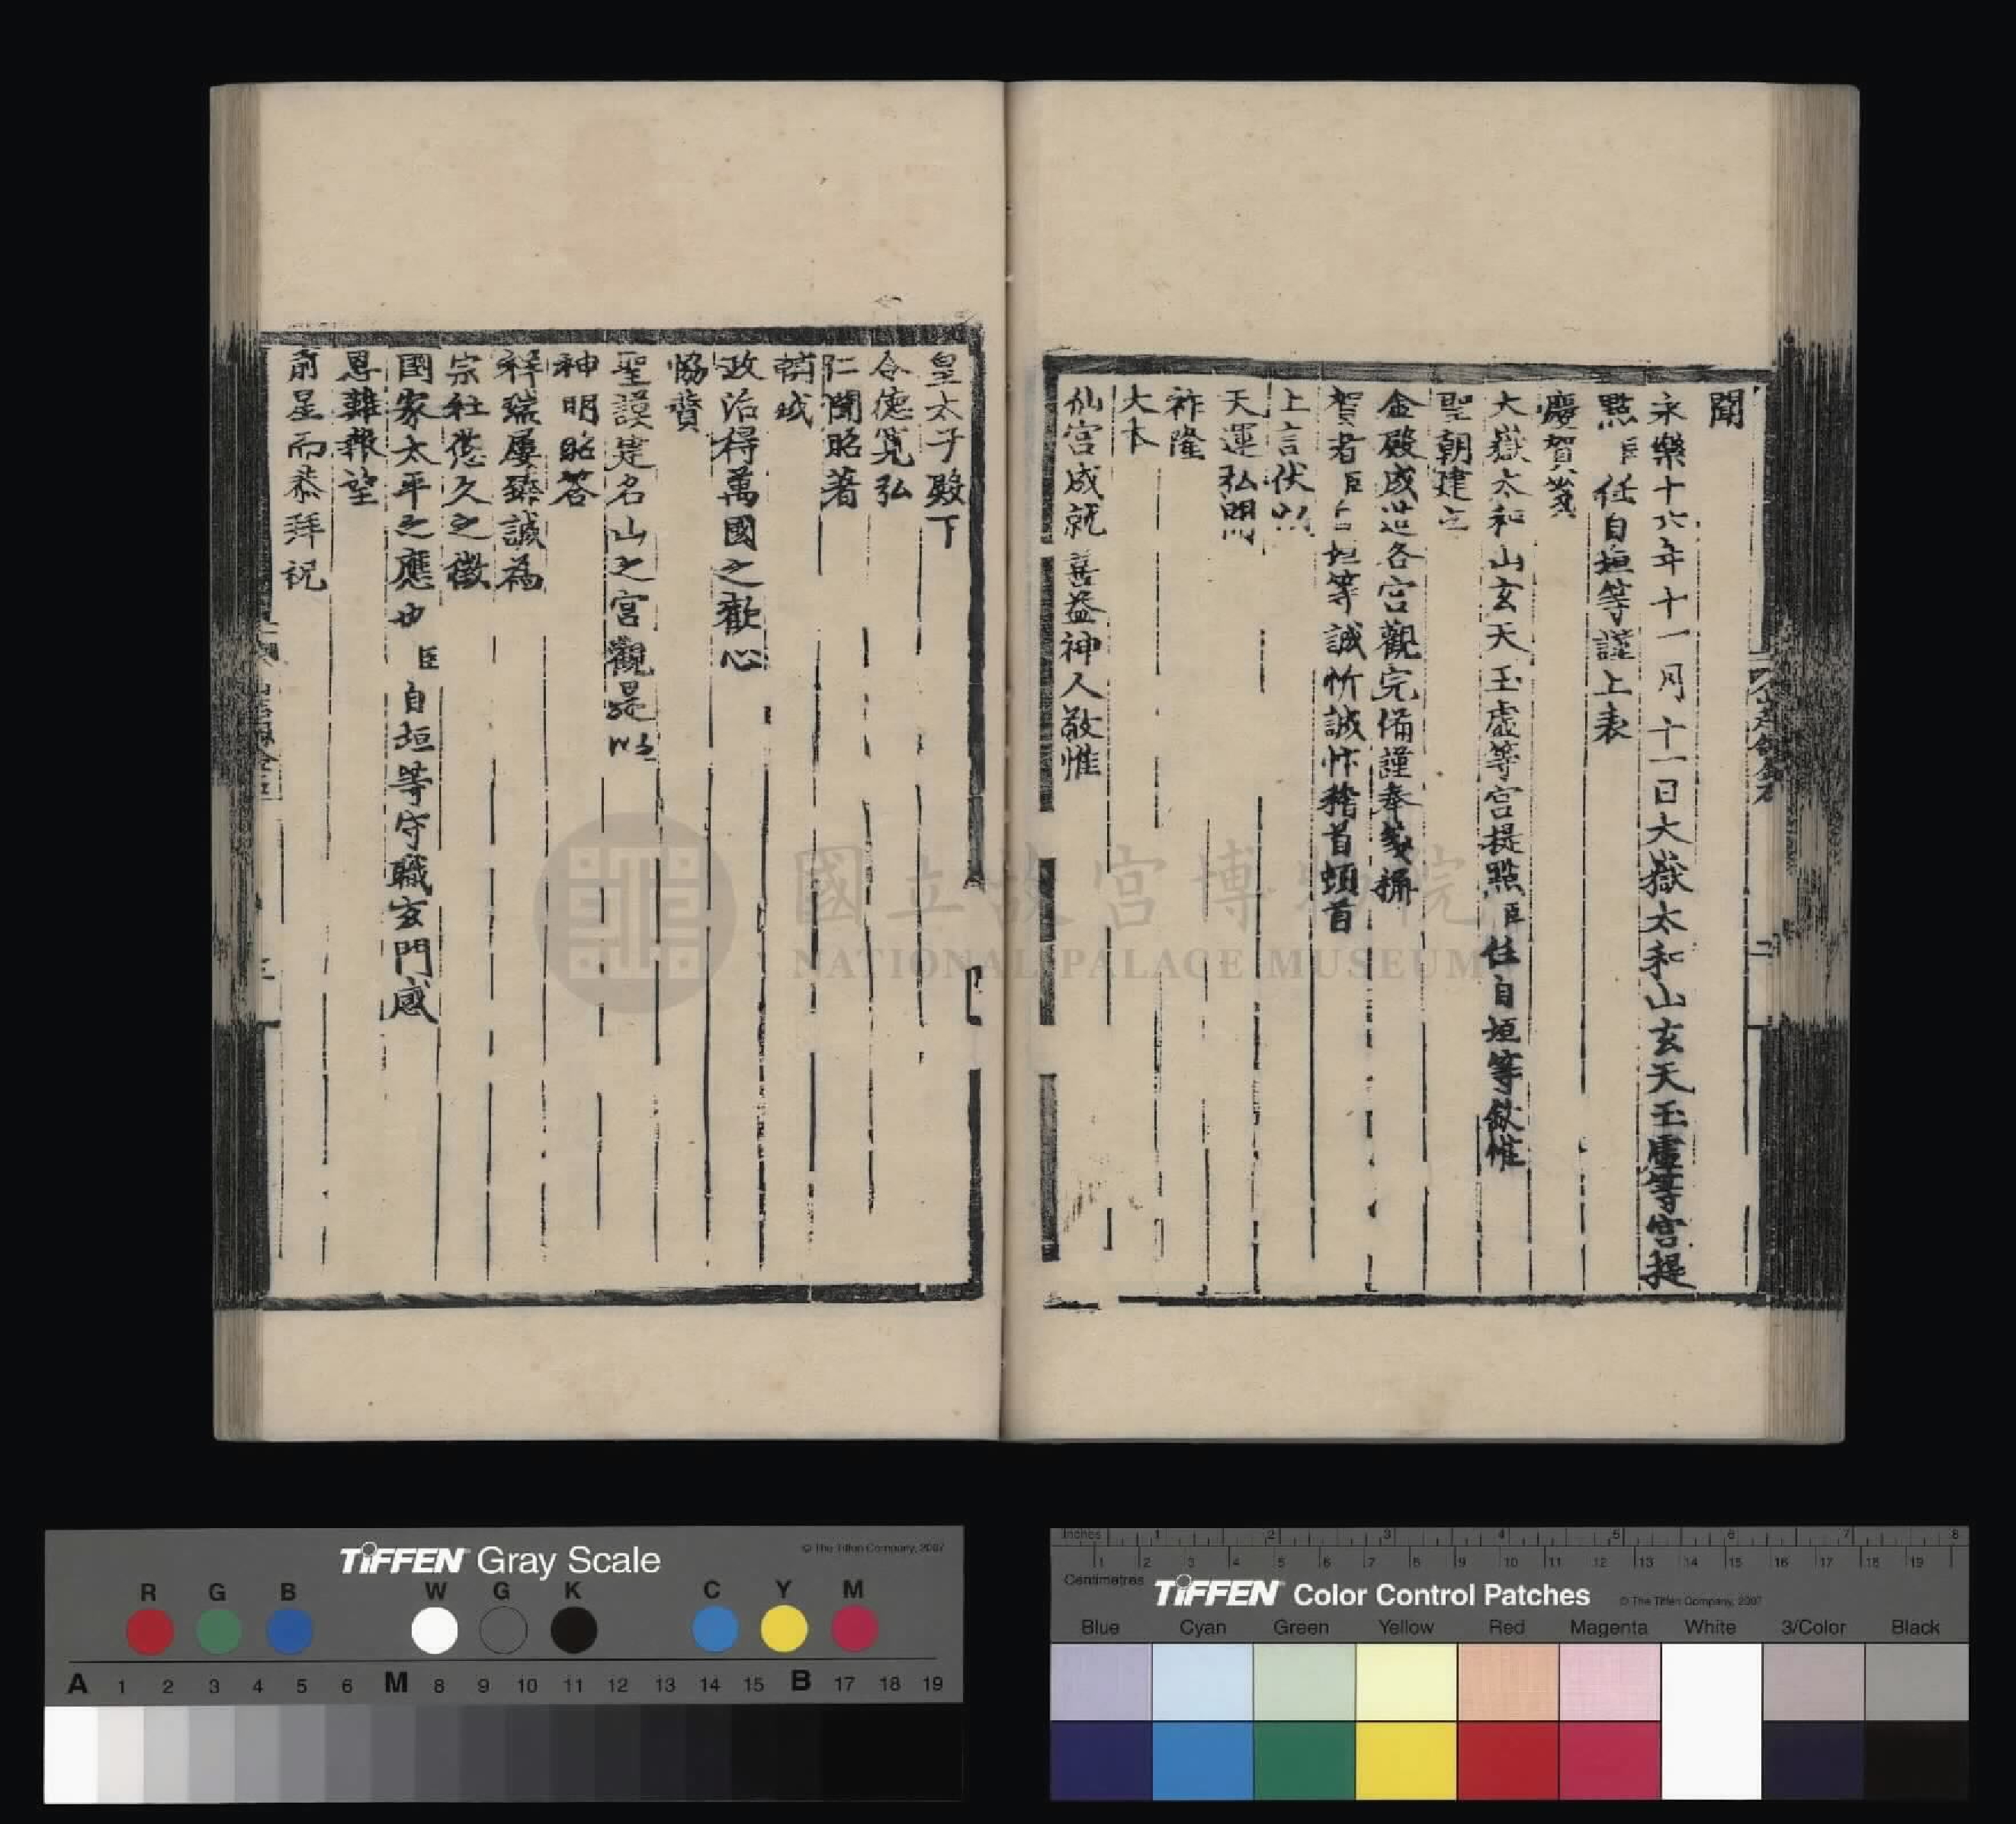 聞
永樂十六年十一月十一日大嶽太和山玄天玉虛等宮提
點臣任自垣等謹上表
慶賀箋
大嶽太和山玄天玉虛等宮提點臣任自垣等欽惟
聖朝建立
金殿成造各宮觀完備謹奉箋捧
賀者臣自垣等誠忻誠忭稽首頓首
上言伏以
天運弘開
祚隆
大本
仙宮成就善益神人敬惟
皇太子殿下
令德寬弘
仁聞昭著
輔成
政治得萬國之歡心
協贊
聖謨建名山之宮觀是以
神明昭答
祥瑞屢臻誠為
宗社悠久之徵
國家太平之應也臣自垣等守職玄門感
恩難報望
前星而恭拜祝
二
三
國立故宮博物院
NATIONAL PALACE MUSEUM
TIFFEN Gray Scale
© The Tiffen Company, 2007
R G B W G K C Y M
A 1 2 3 4 5 6 M 8 9 10 11 12 13 14 15 B 17 18 19
Inches 1 2 3 4 5 6 7 8
1 2 3 4 5 6 7 8 9 10 11 12 13 14 15 16 17 18 19
Centimetres
TIFFEN Color Control Patches
© The Tiffen Company, 2007
Blue Cyan Green Yellow Red Magenta White 3/Color Black